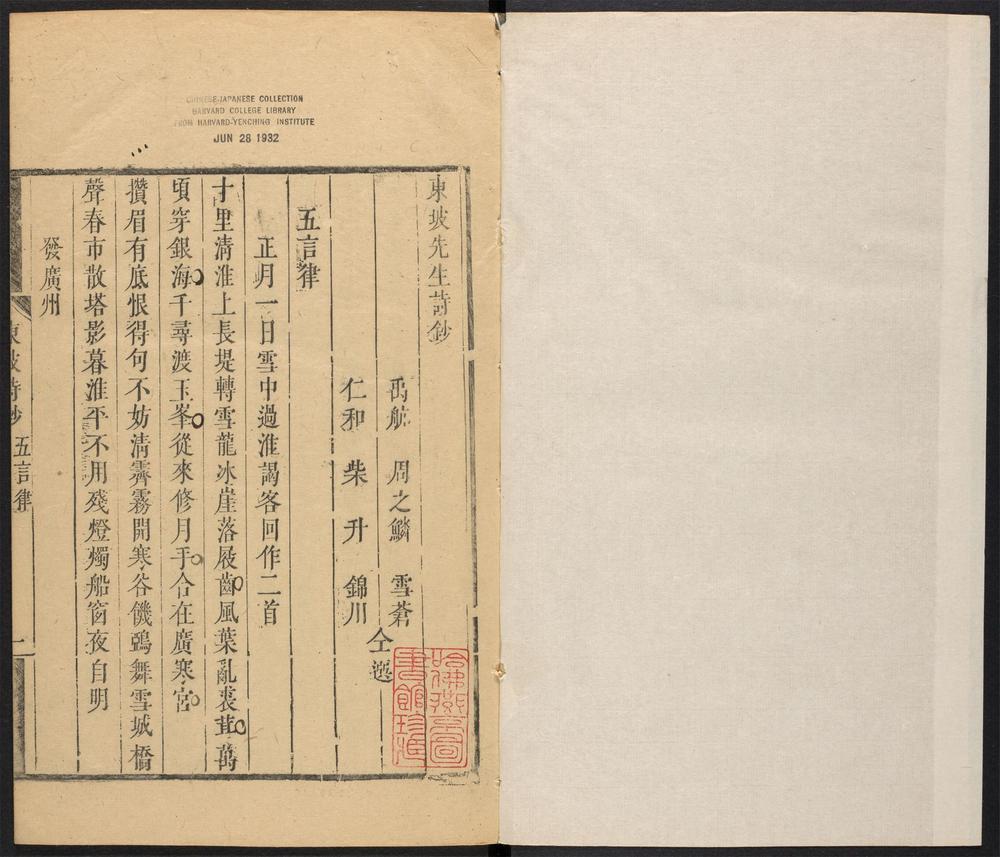 CHINESE-JAPANESE COLLECTION
HARVARD COLLEGE LIBRARY
FROM HARVARD-YENCHING INSTITUTE
JUN 28 1932
東坡先生詩鈔
禹航 周之鱗 雪蒼
仁和 柴升 錦川
仝選
五言律
正月一日雪中過淮謁客回作二首
十里清淮上長堤轉雪龍冰崖落屐齒風葉亂裘茸萬
頃穿銀海千尋渡玉峯從來修月手合在廣寒宮
攢眉有底恨得句不妨清霽霧開寒谷饑鴉舞雪城橋
聲春市散塔影暮淮平不用殘燈燭船窗夜自明
發廣州
東坡詩鈔 五言律 一
哈佛燕京圖
書館珍藏